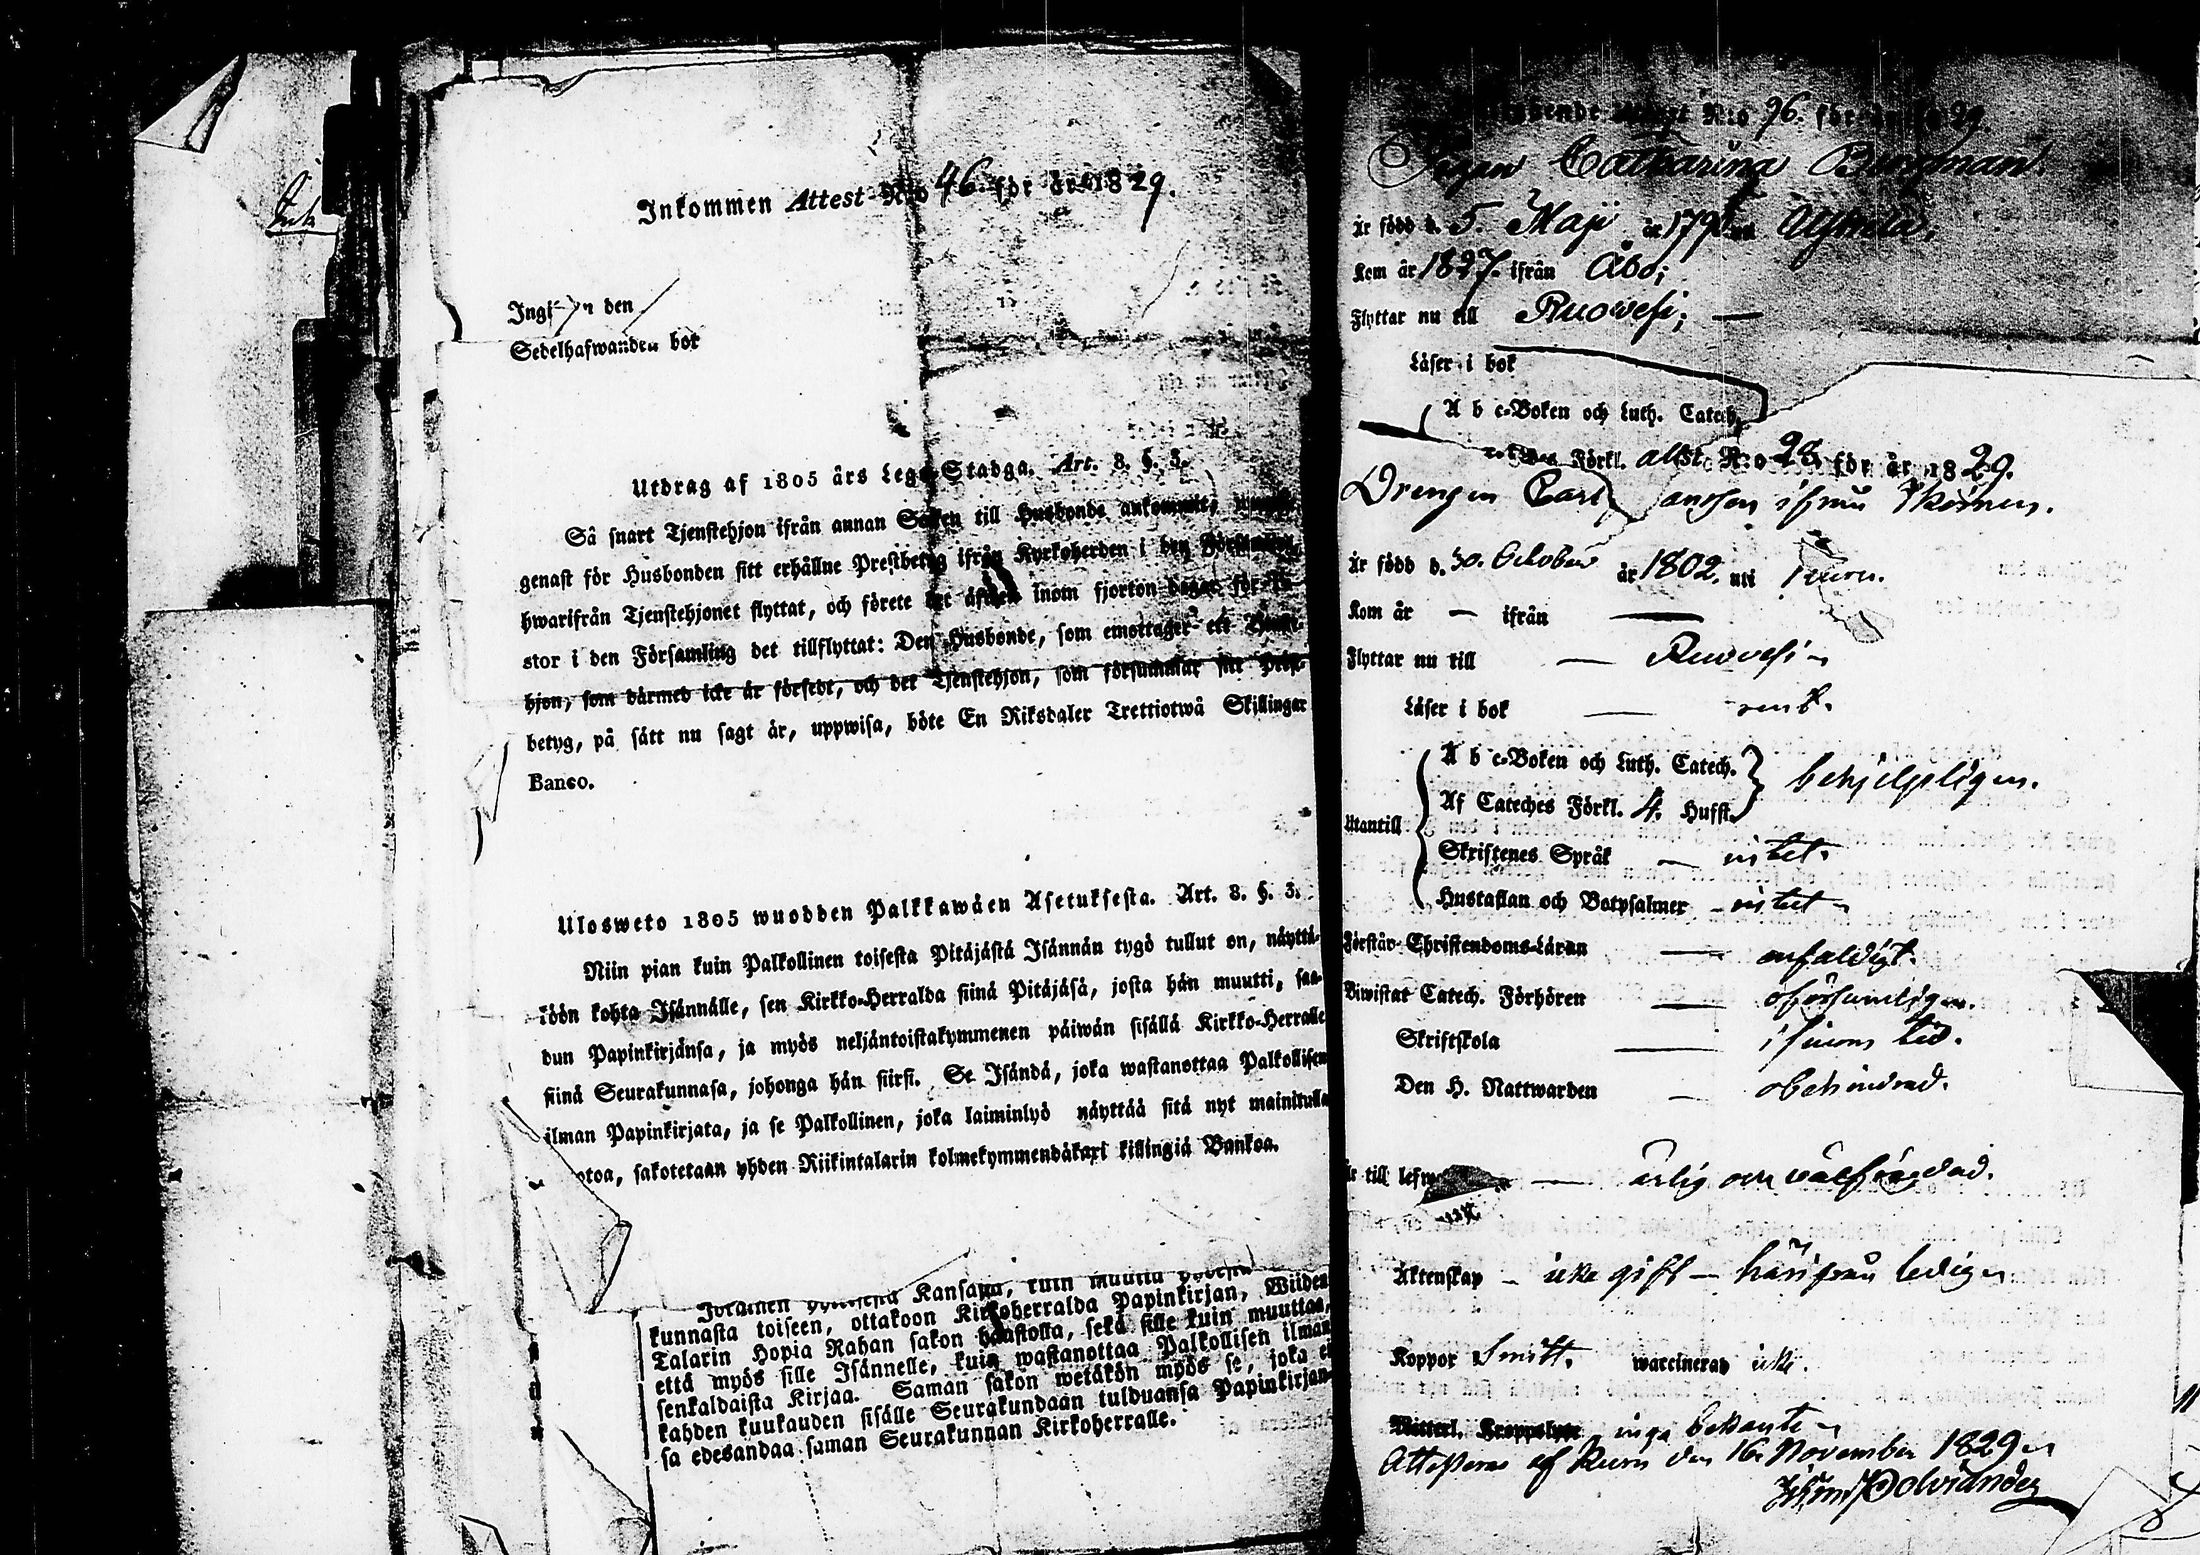 Inkommen Attest N:o 46. för år 1829.
Ingif den
Sedelhafwanden bor
Utdrag af 1805 års Lego-Stadga. Art. 8. §. 3.
Så snart Tjenstehjon ifrån annan Socken till Husbonde ankommit,
genast för Husbonden sitt erhållne Prestbetyg ifrån Kyrkoherden i den Församling,
hwarifrån Tjenstehjonet flyttat, och förete det äfwen inom fjorton dagar för Pa-
stor i den Församling det tillflyttat: Den Husbonde, som emottager ett Tjenste-
hjon, som därmed icke är försedt, och det Tjenstehjon, som försummar sitt Prest-
betyg, på sätt nu sagt är, uppwisa, böte En Riksdaler Trettiotwå Skillingar
Banco.
Ulosweto 1805 wuodden Palkkawäen Asetuksesta. Art. 8. §. 3.
Niin pian kuin Palkollinen toisesta Pitäjästä Isännän tygö tullut on, näyttä-
köön kohta Isännälle, sen Kirkko-Herralda siinä Pitäjäsä, josta hän muutti, saa-
dun Papinkirjänsä, ja myös neljäntoistakymmenen päiwän sisällä Kirkko-Herralle
siinä Seurakunnasa, johonga hän siirsi. Se Isändä, joka wastanottaa Palkollisen
ilman Papinkirjata, ja se Palkollinen, joka laiminlyö näyttää sitä nyt mainitulla
otoa, sakotetaan yhden Riikintalarin kolmekymmendäkaxi killingiä Bankoa.
Kansasta, kuin muutta
kunnasta toiseen, ottakoon Kirkoherralda Papinkirjan, Wiiden
Talarin Hopia Rahan sakon haastolla, sekä sille kuin muuttaa,
että myös sille Isännelle, kuin wastanottaa Palkollisen ilman
senkaldaista Kirjaa. Saman sakon wetäkön myös se, joka ei
kahden kuukauden sisälle Seurakundaan tulduansa Papinkirjan-
sa edesandaa saman Seurakunnan Kirkoherralle.
N:o 96. för år 1829.
Pigan Catharina Bergman.
Är född d. 5. Maji år 179 uti Ulfsrela,
Kom år 1827. ifrån Åbo;
Flyttar nu till Ruowesi; —
Läser i bok
A b c-Boken och Luth. Catech.
Förkl. attst. N:o 28 för år 1829.
Drengen Carl anssen ifrån
Är född d. 30. October år 1802. uti
Kom år — ifrån —
Flyttar nu till — Ruovesi
Läser i bok — rent.
Utantill
A b c-Boken och Luth. Catech.
Af Cateches Förkl. 4. Hufst. behjelpligen.
Skriftenes Språk — intet.
Hustaflan och Botpsalmer — intet
Förstår Christendoms-Läran — enfaldigt.
Biwistat Catech. Förhören — oförsumligen.
Skriftskola — i sinom tid.
Den H. Nattwarden — obehindrad.
Är till lefw — ärlig och välfrägdad.
Äktenskap — icke gift — härifrån ledig
Koppor Smitt. waccinerad icke.
Witterl. Kroppslyte inga bekante
Attesteras af Kuru den 16. November 1829